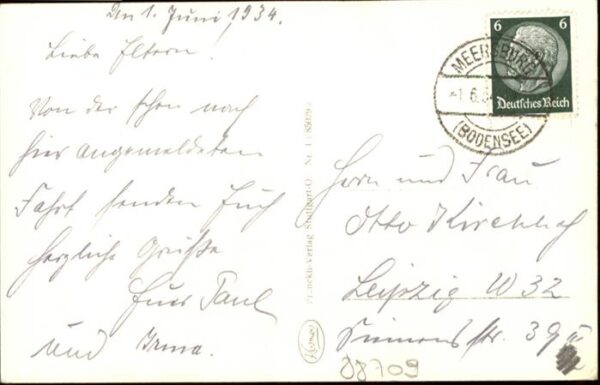 den 1. Juni 1934.
Liebe Eltern!
Von der schon nach
hier angemeldeten
Fahrt senden Euch
herzliche Grüße
Euer Paul
und Irma.
6 6
Deutsches Reich
MEERSBURG
1.6.3
(BODENSEE)
Herrn und Frau
Otto Kirchhof
Leipzig W 32
Simonsstr. 39 II
Franckh-Verlag Stuttgart-O. Nr.
Kosmos
08709